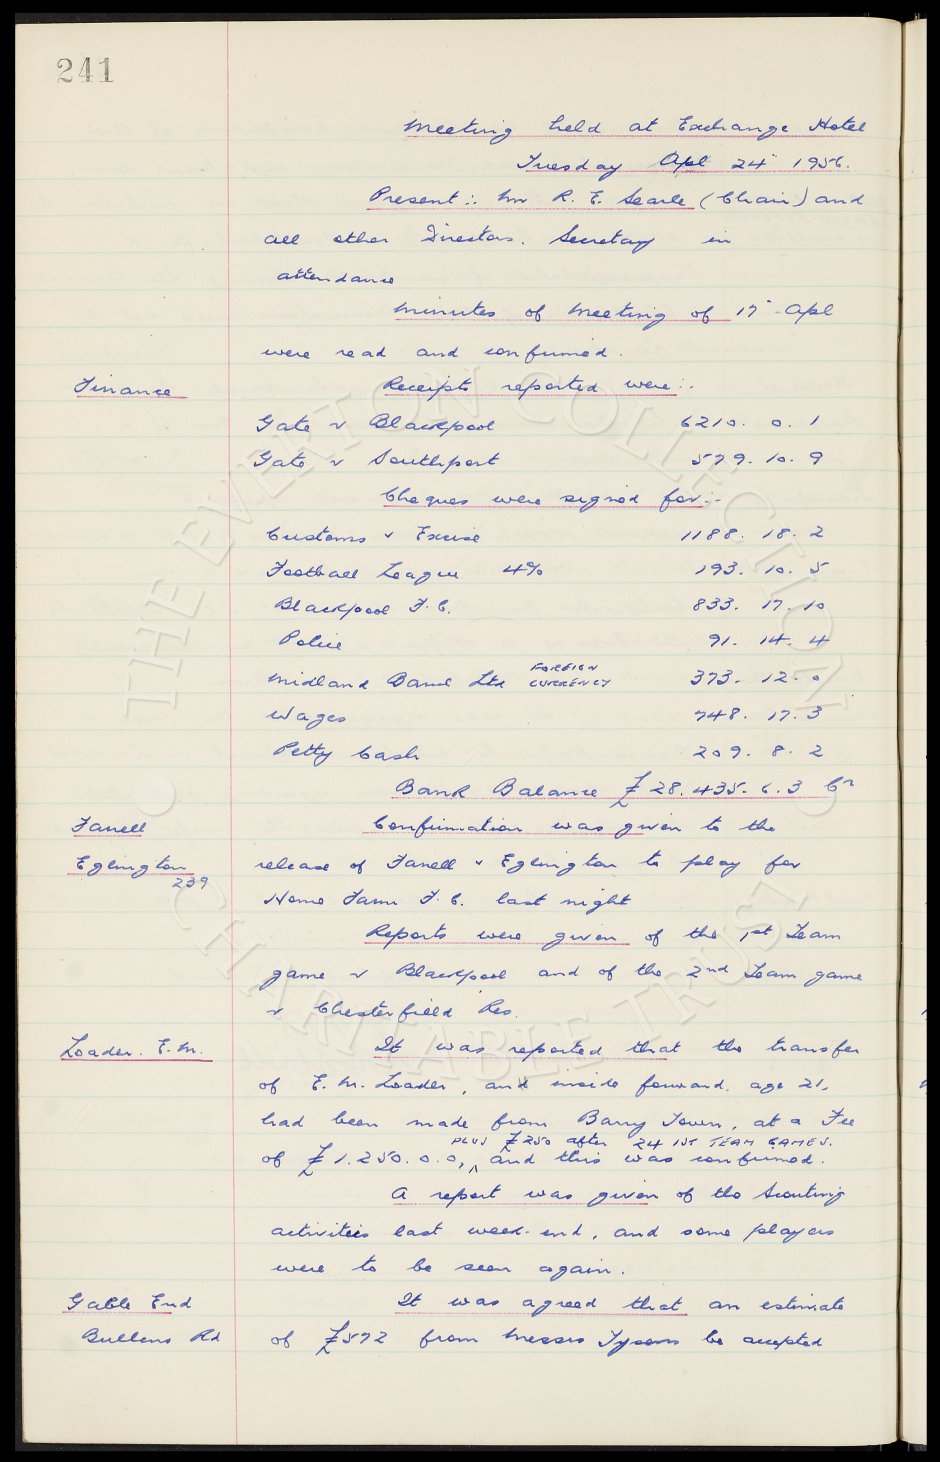 241
Meeting held at Exchange Hotel
Tuesday Apl 24" 1956.
Present:. Mr R. E. Searle (Chair) and
all other Directors. Secretary in
attendance
Minutes of Meeting of 17" Apl
were read and confirmed.
Finance Receipts reported were:.
Gate v Blackpool 6210. 0. 1
Gate v Southport 579. 10. 9
Cheques were signed for:-
Customs & Excise 1188. 18. 2
Football League 4% 193. 10. 5
Blackpool F. C. 833. 17. 10
Police 91. 14. 4
Midland Bank Ltd FOREIGN CURRENCY 373. 12. 0
Wages 748. 17. 3
Petty Cash 209. 8. 2
Bank Balance £28.435. 6. 3 Cr
Farrell Confirmation was given to the
Eglington release of Farrell & Eglington to play for
239
Home Farm F. C. last night
Reports were given of the 1st Team
game v Blackpool and of the 2nd Team game
v Chesterfield Res.
Loader. E. M. It was reported that the transfer
of E. M. Loader, and inside forward. age 21,
had been made from Barry Town, at a Fee
PLUS £250 after 24 1ST TEAM GAMES.
of £1.250. 0. 0, ^ and this was confirmed.
A report was given of the Scouting
activities last week-end, and some players
were to be seen again.
Gable End It was agreed that an estimate
Bullens Rd of £572 from Messrs Tysons be accepted
THE EVERTON COLLECTION
CHARITABLE TRUST